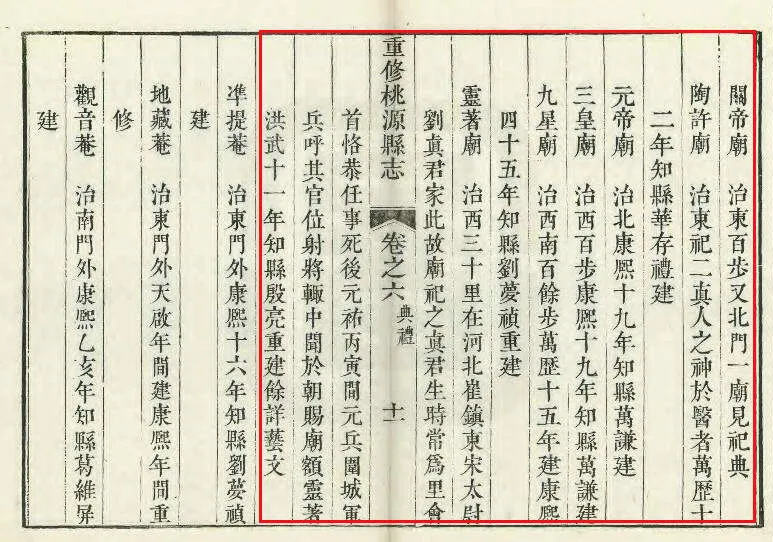 關帝廟 治東百步又北門一廟見祀典
陶許廟 治東祀二真人之神於醫者萬歷十
二年知縣華存禮建
元帝廟 治北康熙十九年知縣萬謙建
三皇廟 治西百步康熙十九年知縣萬謙建
九星廟 治西南百餘步萬歷十五年建康熙
四十五年知縣劉夢禎重建
靈著廟 治西三十里在河北崔鎮東宋太尉
劉真君家此故廟祀之真君生時常為里會
重修桃源縣志 卷之六 典禮 十一
首恪恭任事死後元祐丙寅間元兵圍城軍
兵呼其官位射將輙中聞於朝賜廟額靈著
洪武十一年知縣殷亮重建餘詳藝文
凖提菴 治東門外康熙十六年知縣劉夢禎
建
地藏菴 治東門外天啟年間建康熙年間重
修
觀音菴 治南門外康熙乙亥年知縣葛維屏
建